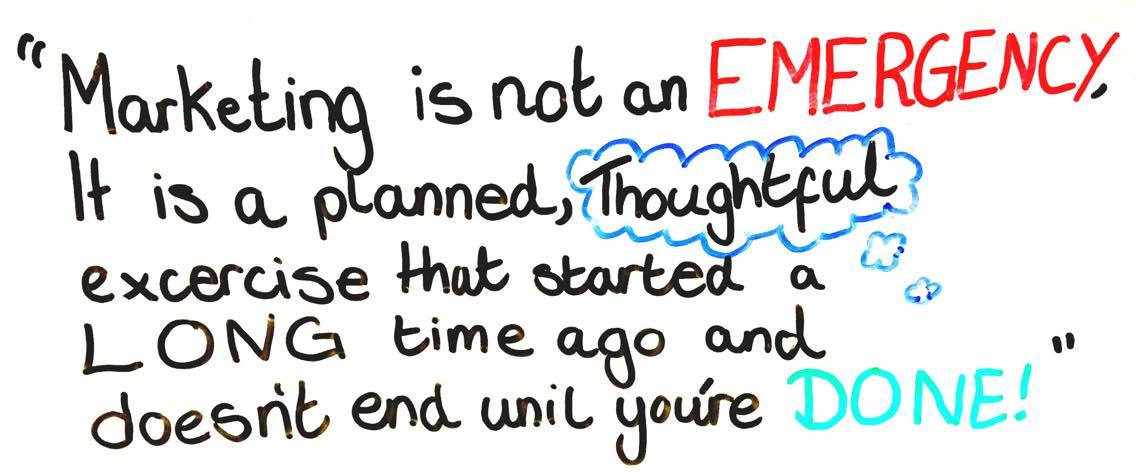 "Marketing is not an EMERGENCY,
It is a planned, Thoughtful
excercise that started a
LONG time ago and
doesn't end unil you're DONE!"